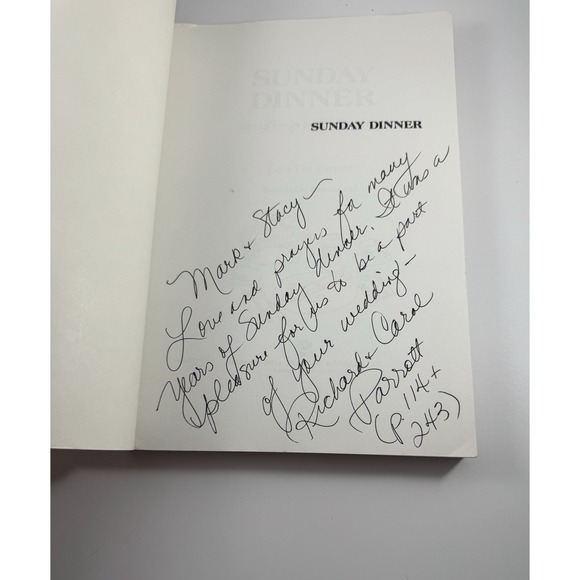 SUNDAY
DINNER
SUNDAY DINNER
Mark + Stacy –
Love and prayers for many
years of Sunday dinner. It was a
pleasure for us to be a part
of your wedding –
Richard + Carol
Parrott
(P. 114 +
243)